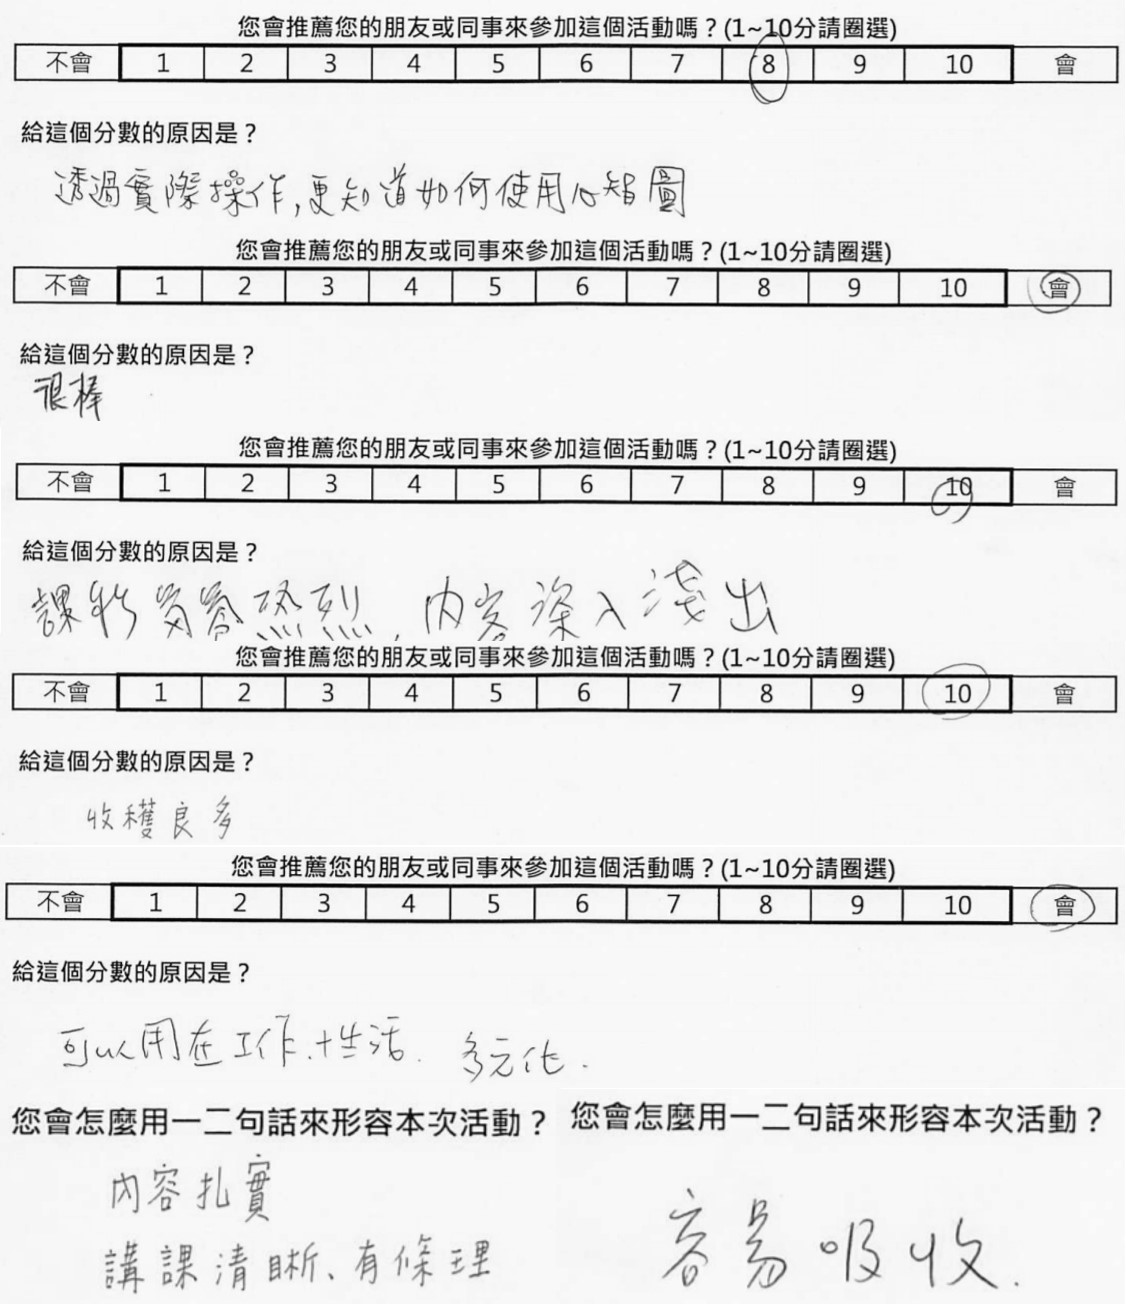 您會推薦您的朋友或同事來參加這個活動嗎？(1~10分請圈選)
不會 1 2 3 4 5 6 7 8 9 10 會
給這個分數的原因是？
透過實際操作,更知道如何使用心智圖
您會推薦您的朋友或同事來參加這個活動嗎？(1~10分請圈選)
不會 1 2 3 4 5 6 7 8 9 10 會
給這個分數的原因是？
很棒
您會推薦您的朋友或同事來參加這個活動嗎？(1~10分請圈選)
不會 1 2 3 4 5 6 7 8 9 10 會
給這個分數的原因是？
課程 熱烈,內容深入淺出
您會推薦您的朋友或同事來參加這個活動嗎？(1~10分請圈選)
不會 1 2 3 4 5 6 7 8 9 10 會
給這個分數的原因是？
收穫良多
您會推薦您的朋友或同事來參加這個活動嗎？(1~10分請圈選)
不會 1 2 3 4 5 6 7 8 9 10 會
給這個分數的原因是？
可以用在工作、生活. 多元化.
您會怎麼用一二句話來形容本次活動？
內容扎實
講課清晰、有條理
您會怎麼用一二句話來形容本次活動？
容易吸收.